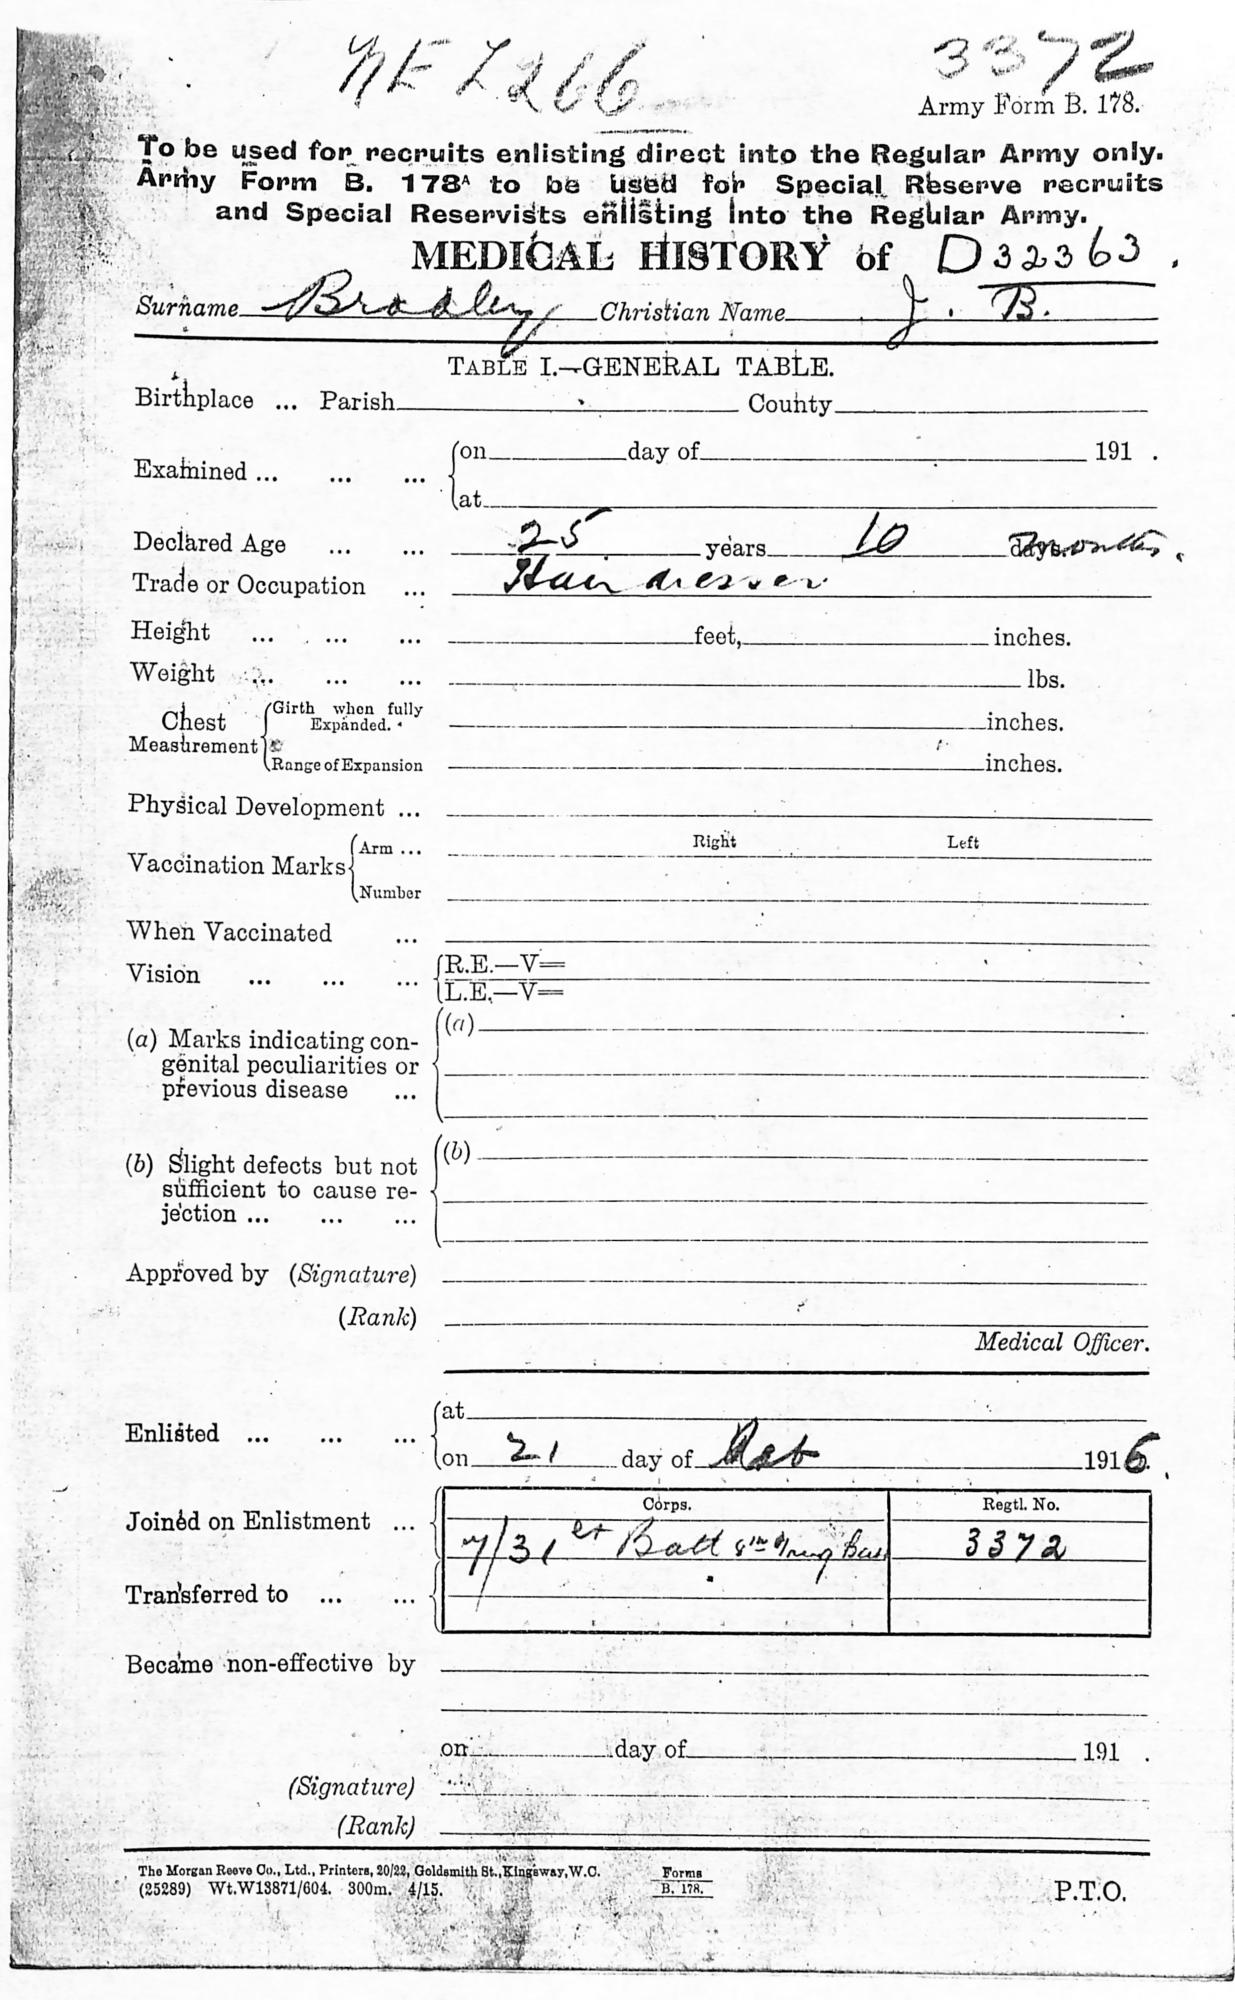 NEL266
3372
Army Form B. 178.
To be used for recruits enlisting direct into the Regular Army only.
Army Form B. 178A to be used for Special Reserve recruits
and Special Reservists enlisting into the Regular Army.
MEDICAL HISTORY of D32363
Surname Bradley Christian Name J. B.
TABLE I.—GENERAL TABLE.
Birthplace ... Parish County
Examined ... ... ... on day of 191 .
at
Declared Age ... ... 25 years 10 days months.
Trade or Occupation ... Hair dresser
Height ... ... ... feet, inches.
Weight ... ... ... lbs.
Chest Measurement Girth when fully Expanded. inches.
Range of Expansion inches.
Physical Development ...
Vaccination Marks Arm ... Right Left
Number
When Vaccinated ...
Vision ... ... ... R.E.—V=
L.E.—V=
(a) Marks indicating con- (a)
genital peculiarities or
previous disease ...
(b) Slight defects but not (b)
sufficient to cause re-
jection ... ... ...
Approved by (Signature)
(Rank)
Medical Officer.
Enlisted ... ... ... at
on 21 day of 1916.
Corps. Regtl. No.
Joined on Enlistment ... 7/31st Batt 8th 3372
Transferred to ... ...
Became non-effective by
on day of 191 .
(Signature)
(Rank)
The Morgan Reeve Co., Ltd., Printers, 20/22, Goldsmith St., Kingsway, W.C.
(25289) Wt.W13871/604. 300m. 4/15.
Forms
B. 178.
P.T.O.